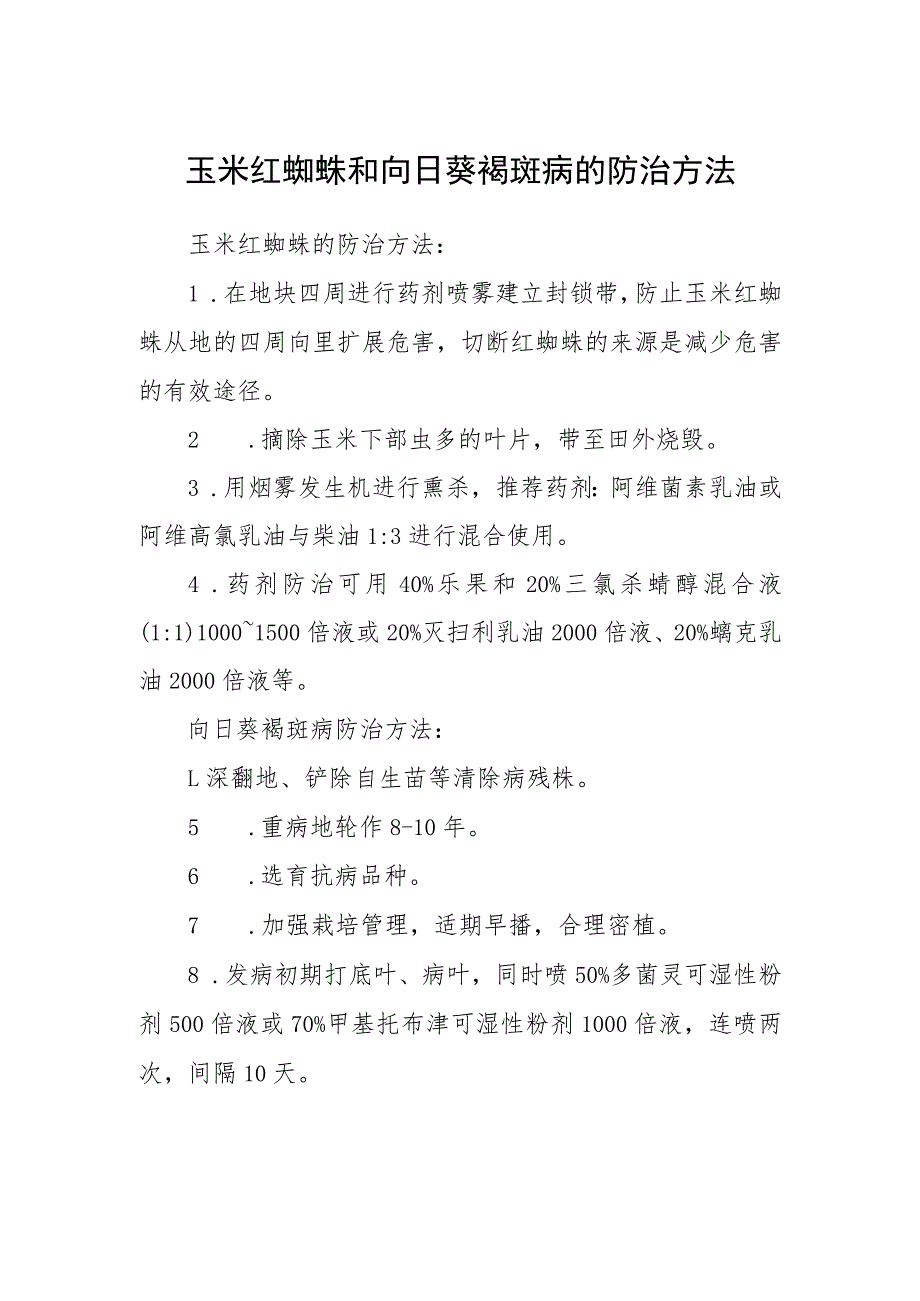 玉米红蜘蛛和向日葵褐斑病的防治方法
玉米红蜘蛛的防治方法：
1 .在地块四周进行药剂喷雾建立封锁带，防止玉米红蜘
蛛从地的四周向里扩展危害，切断红蜘蛛的来源是减少危害
的有效途径。
2 .摘除玉米下部虫多的叶片，带至田外烧毁。
3 .用烟雾发生机进行熏杀，推荐药剂：阿维菌素乳油或
阿维高氯乳油与柴油1:3进行混合使用。
4 .药剂防治可用40%乐果和20%三氯杀蜻醇混合液
(1:1)1000~1500倍液或20%灭扫利乳油2000倍液、20%螭克乳
油2000倍液等。
向日葵褐斑病防治方法：
L深翻地、铲除自生苗等清除病残株。
5 .重病地轮作8-10年。
6 .选育抗病品种。
7 .加强栽培管理，适期早播，合理密植。
8 .发病初期打底叶、病叶，同时喷50%多菌灵可湿性粉
剂500倍液或70%甲基托布津可湿性粉剂1000倍液，连喷两
次，间隔10天。